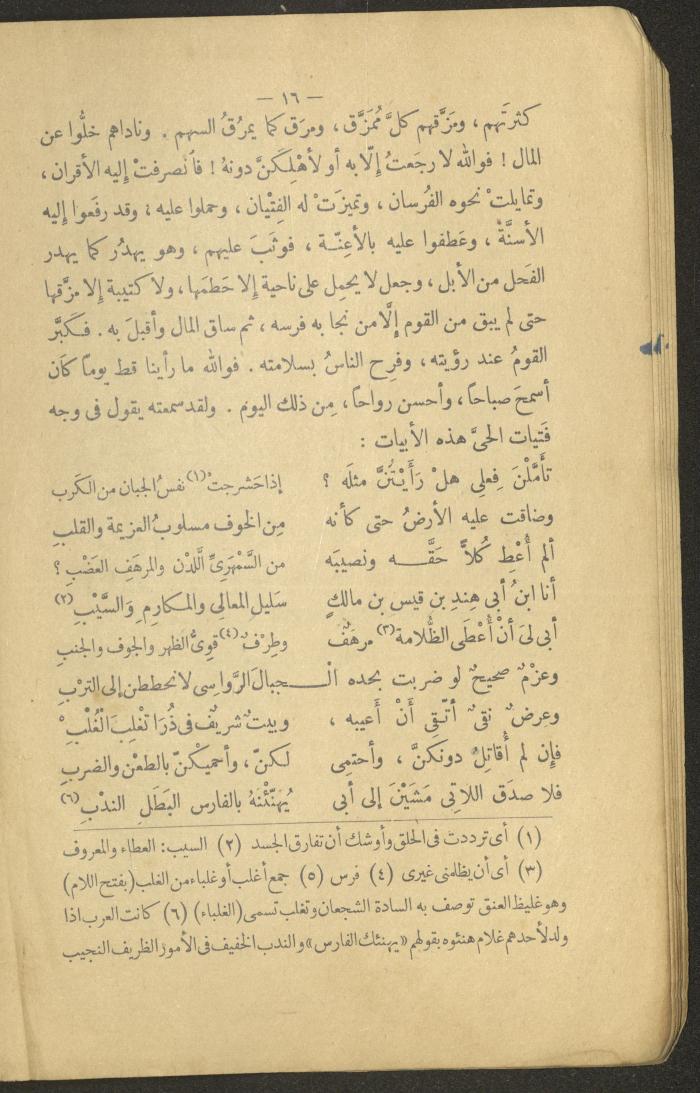 — ١٦ —
كثرتَهم ، ومَزَّقهم كلَّ مُمَزَّق ، ومرَق كما يمرُقُ السهم . وناداهم خلُّوا عن
المال ! فوالله لا رجَعتُ إِلَّا به أو لأهْلِكَنَّ دونهُ ! فانصرفتْ إِليه الأقران ،
وتمايلتْ نحوه الفُرسان ، وتميزَتْ له الفِتْيان ، وحملوا عليه ؛ وقد رفَعوا إليه
الأسنَّةَ ، وعَطفوا عليه بالأعِنّة ، فوثَبَ عليهم ، وهو يهدُر كما يهدر
الفَحل من الأبل ، وجعل لا يحمِل على ناحية إلا حَطمَها ، ولا كتيبة إلا مزَّقها
حتى لم يبق من القوم إلَّا من نجا به فرسه ، ثم ساق المال وأقبلَ به . فكَبَّر
القومُ عند رؤيته ، وفرِح الناسُ بسلامته . فوالله ما رأينا قط يوماً كَان
أسمحَ صباحاً ، وأحسن رواحاً ، مِن ذلك اليوم . ولقد سمعته يقول فى وجه
فَتيات الحىّ هذه الأبيات :
تأَمَّلْنَ فِعلى هلْ رَأَيْتُنَّ مثلَه ؟ إذا حَشرجتْ (١) نفسُ الجبان من الكَرب
وضاقت عليه الأرضُ حتى كأنه مِن الخوف مسلوبُ العزيمة والقلبِ
ألم أُعْطِ كُلاًّ حَقَّه ونصيبَه من السَّمْهَرِىِّ اللَّدْن والمرهَفِ العَضْبِ ؟
أنا ابنُ أبى هِندِ بن قيس بن مالكٍ سَليلِ المعالى والمكارِمِ وَالسَّيْبِ (٢)
أبى لىَ أنْ أُعْطَى الظُّلامة (٣) مرهَفٌ وطِرْفٌ (٤) قوِىُّ الظهر والجوف والجنبِ
وعزْمٌ صحيحٌ لو ضربت بحده الـجبالَ الرَّواسى لانحططن إلى التربْ
وعِرضٌ نقىٌ أتّقى أنْ أَعيبه ، وبيتٌ شريفٌ فى ذُرَا تغْلِبَ الْغُلْبِ ْ
فإِن لم أُقاتِلْ دونكنَّ ، وأحتمِى لكنّ ، وأحميكُنّ بالطعْن والضربِ
فلا صدَق اللاتى مَشَيْنَ إلى أبى يُهنِّئْنَهُ بالفارسِ البَطَلِ الندْبِ (٦)
(١) أى ترددت فى الحلق وأوشك أن تفارق الجسد (٢) السيب : العطاء والمعروف
(٣) أى أن يظلمنى غيرى (٤) فرس (٥) جمع أغلب أو غلباء من الغلب (بفتح اللام)
وهو غليظ العنق توصف به السادة الشجعان وتغلب تسمى (الغلباء) (٦) كانت العرب اذا
ولد لأحدهم غلام هنئوه بقولهم «يهنئك الفارس» والندب الخفيف فى الأمور الظريف النجيب